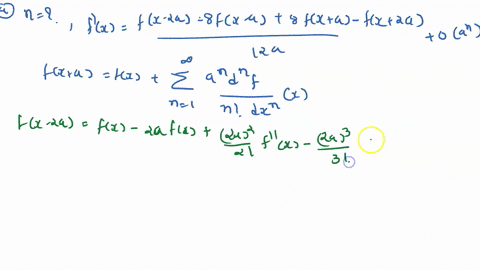 n=?. , f'(x) = f(x-2a) - 8f(x-a) + 8f(x+a) - f(x+2a) / 12a + O(aⁿ)
f(x+a) = f(x) + ∑_{n=1}^{∞} aⁿ dⁿf / n! dxⁿ (x)
f(x-2a) = f(x) - 2a f'(x) + (2a)² / 2! f''(x) - (2a)³ / 3!